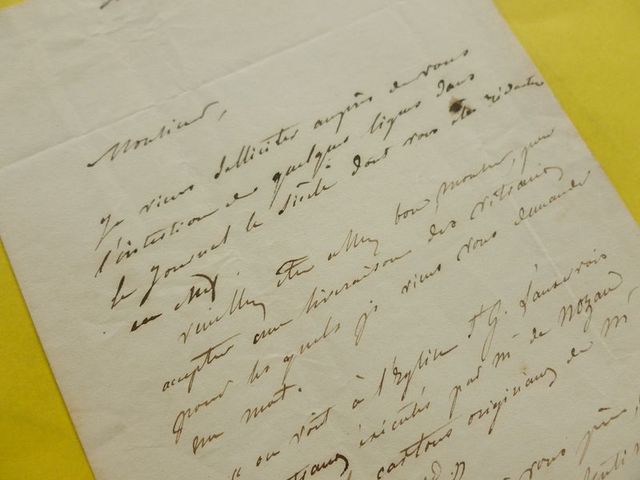 Monsieur,
Je viens solliciter auprès de vous
l'insertion de quelques lignes dans
le journal le Siècle dont vous êtes rédacteur
en chef
veuillez être assez bon, Monsieur, pour
accepter une livraison des vitraux
pour les quels je viens vous demander
un mot.
on voit à l'Eglise St G. l'auxerrois
vitraux exécutés par Mr de Nozan
cartons originaux de Mr
vous prie,